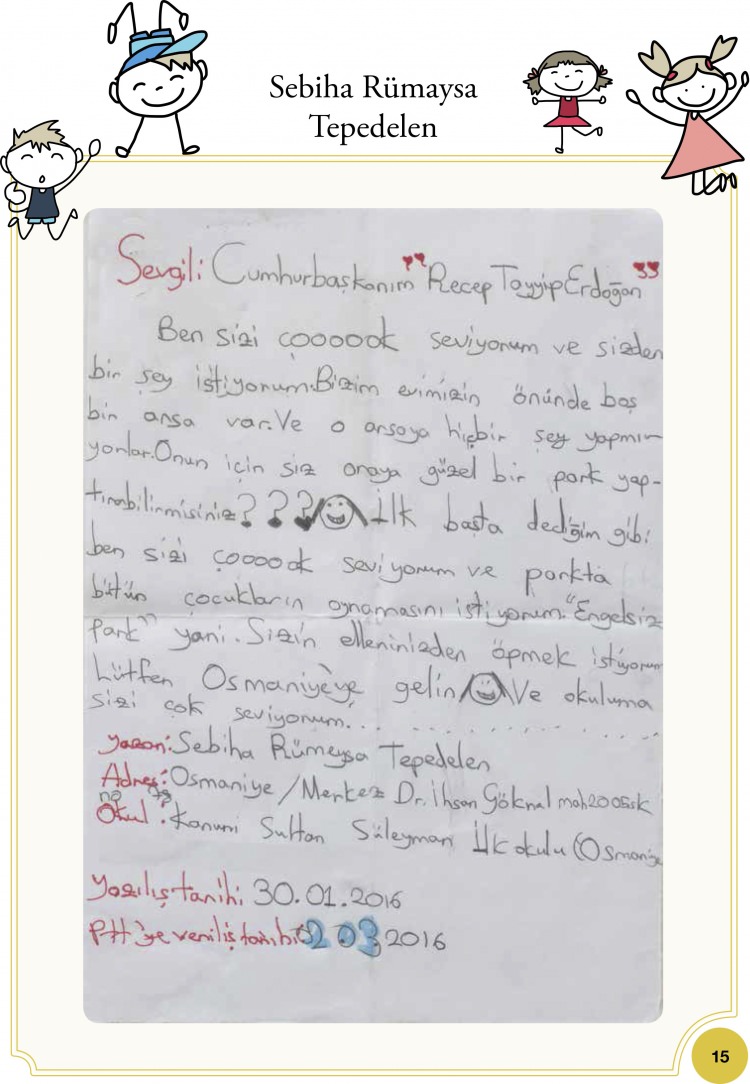 Sebiha Rümaysa
Tepedelen
Sevgili Cumhurbaşkanım "Recep Tayyip Erdoğan"
Ben sizi çoooook seviyorum ve sizden
bir şey istiyorum. Bizim evimizin önünde boş
bir arsa var. Ve o arsaya hiçbir şey yapmır
yorlar. Onun için siz oraya güzel bir park yap-
tırabilirmisiniz??? İlk başta dediğim gibi
ben sizi çoooook seviyorum ve parkta
bütün çocukların oynamasını istiyorum. "Engelsiz
Park" yani. Sizin elleninizden öpmek istiyorum
Lütfen Osmaniye'ye gelin Ve okuluma
sizi çok seviyorum...
yazan: Sebiha Rümeysa Tepedelen
Adres: Osmaniye/Merkez Dr. İhsan Göknal mah 2005sk
no
Okul: Kanuni Sultan Süleyman İlk okulu (Osmaniye
Yazılış tarihi 30.01.2016
Ptt'ye veriliş tarihi 02.03.2016
15